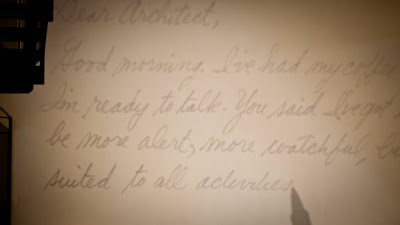 Dear Architect,
Good morning. I've had my coffee
I'm ready to talk. You said I've got
be more alert, more watchful,
suited to all activities